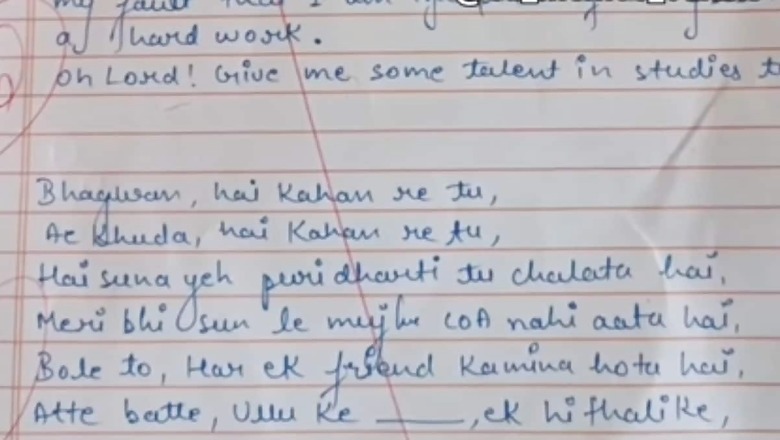 my fault that I
of hard work.
oh Lord! Give me some talent in studies t
Bhagwan, hai Kahan re tu,
Ae khuda, hai Kahan re tu,
Hai suna yeh puri dharti tu chalata hai,
Meri bhi sun le mujhe COA nahi aata hai,
Bole to, Har ek friend Kamina hota hai,
Atte batte, Ullu ke ____, ek hi thali ke,